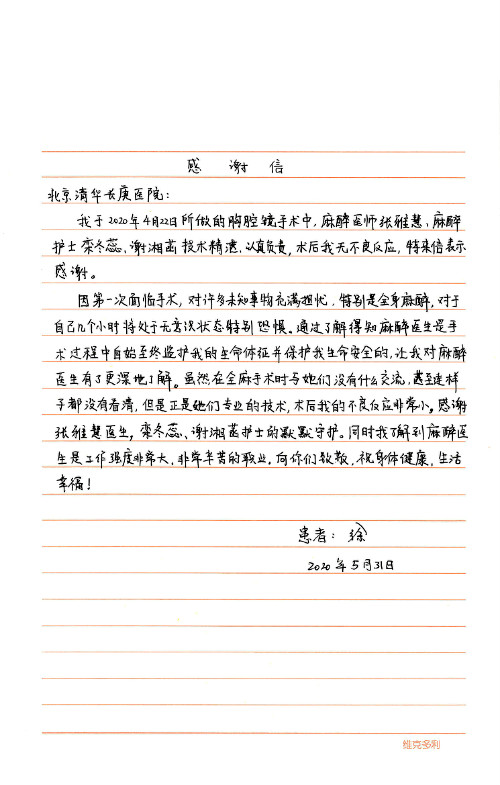 感谢信
北京清华长庚医院:
我于2020年4月22日所做的胸腔镜手术中,麻醉医师张雅慧、麻醉
护士栾冬蕊、谢湘菡技术精湛、认真负责,术后我无不良反应,特来信表示
感谢。
因第一次面临手术,对许多未知事物充满担忧,特别是全身麻醉,对于
自己几个小时将处于无意识状态特别恐惧。通过了解得知麻醉医生是手
术过程中自始至终监护我的生命体征并保护我生命安全的,让我对麻醉
医生有了更深地了解。虽然在全麻手术时与她们没有什么交流,甚至连样
子都没有看清,但是正是她们专业的技术,术后我的不良反应非常小。感谢
张雅慧医生,栾冬蕊、谢湘菡护士的默默守护。同时我了解到麻醉医
生是工作强度非常大,非常辛苦的职业。向你们致敬,祝身体健康,生活
幸福!
患者:徐
2020年5月31日
维克多利